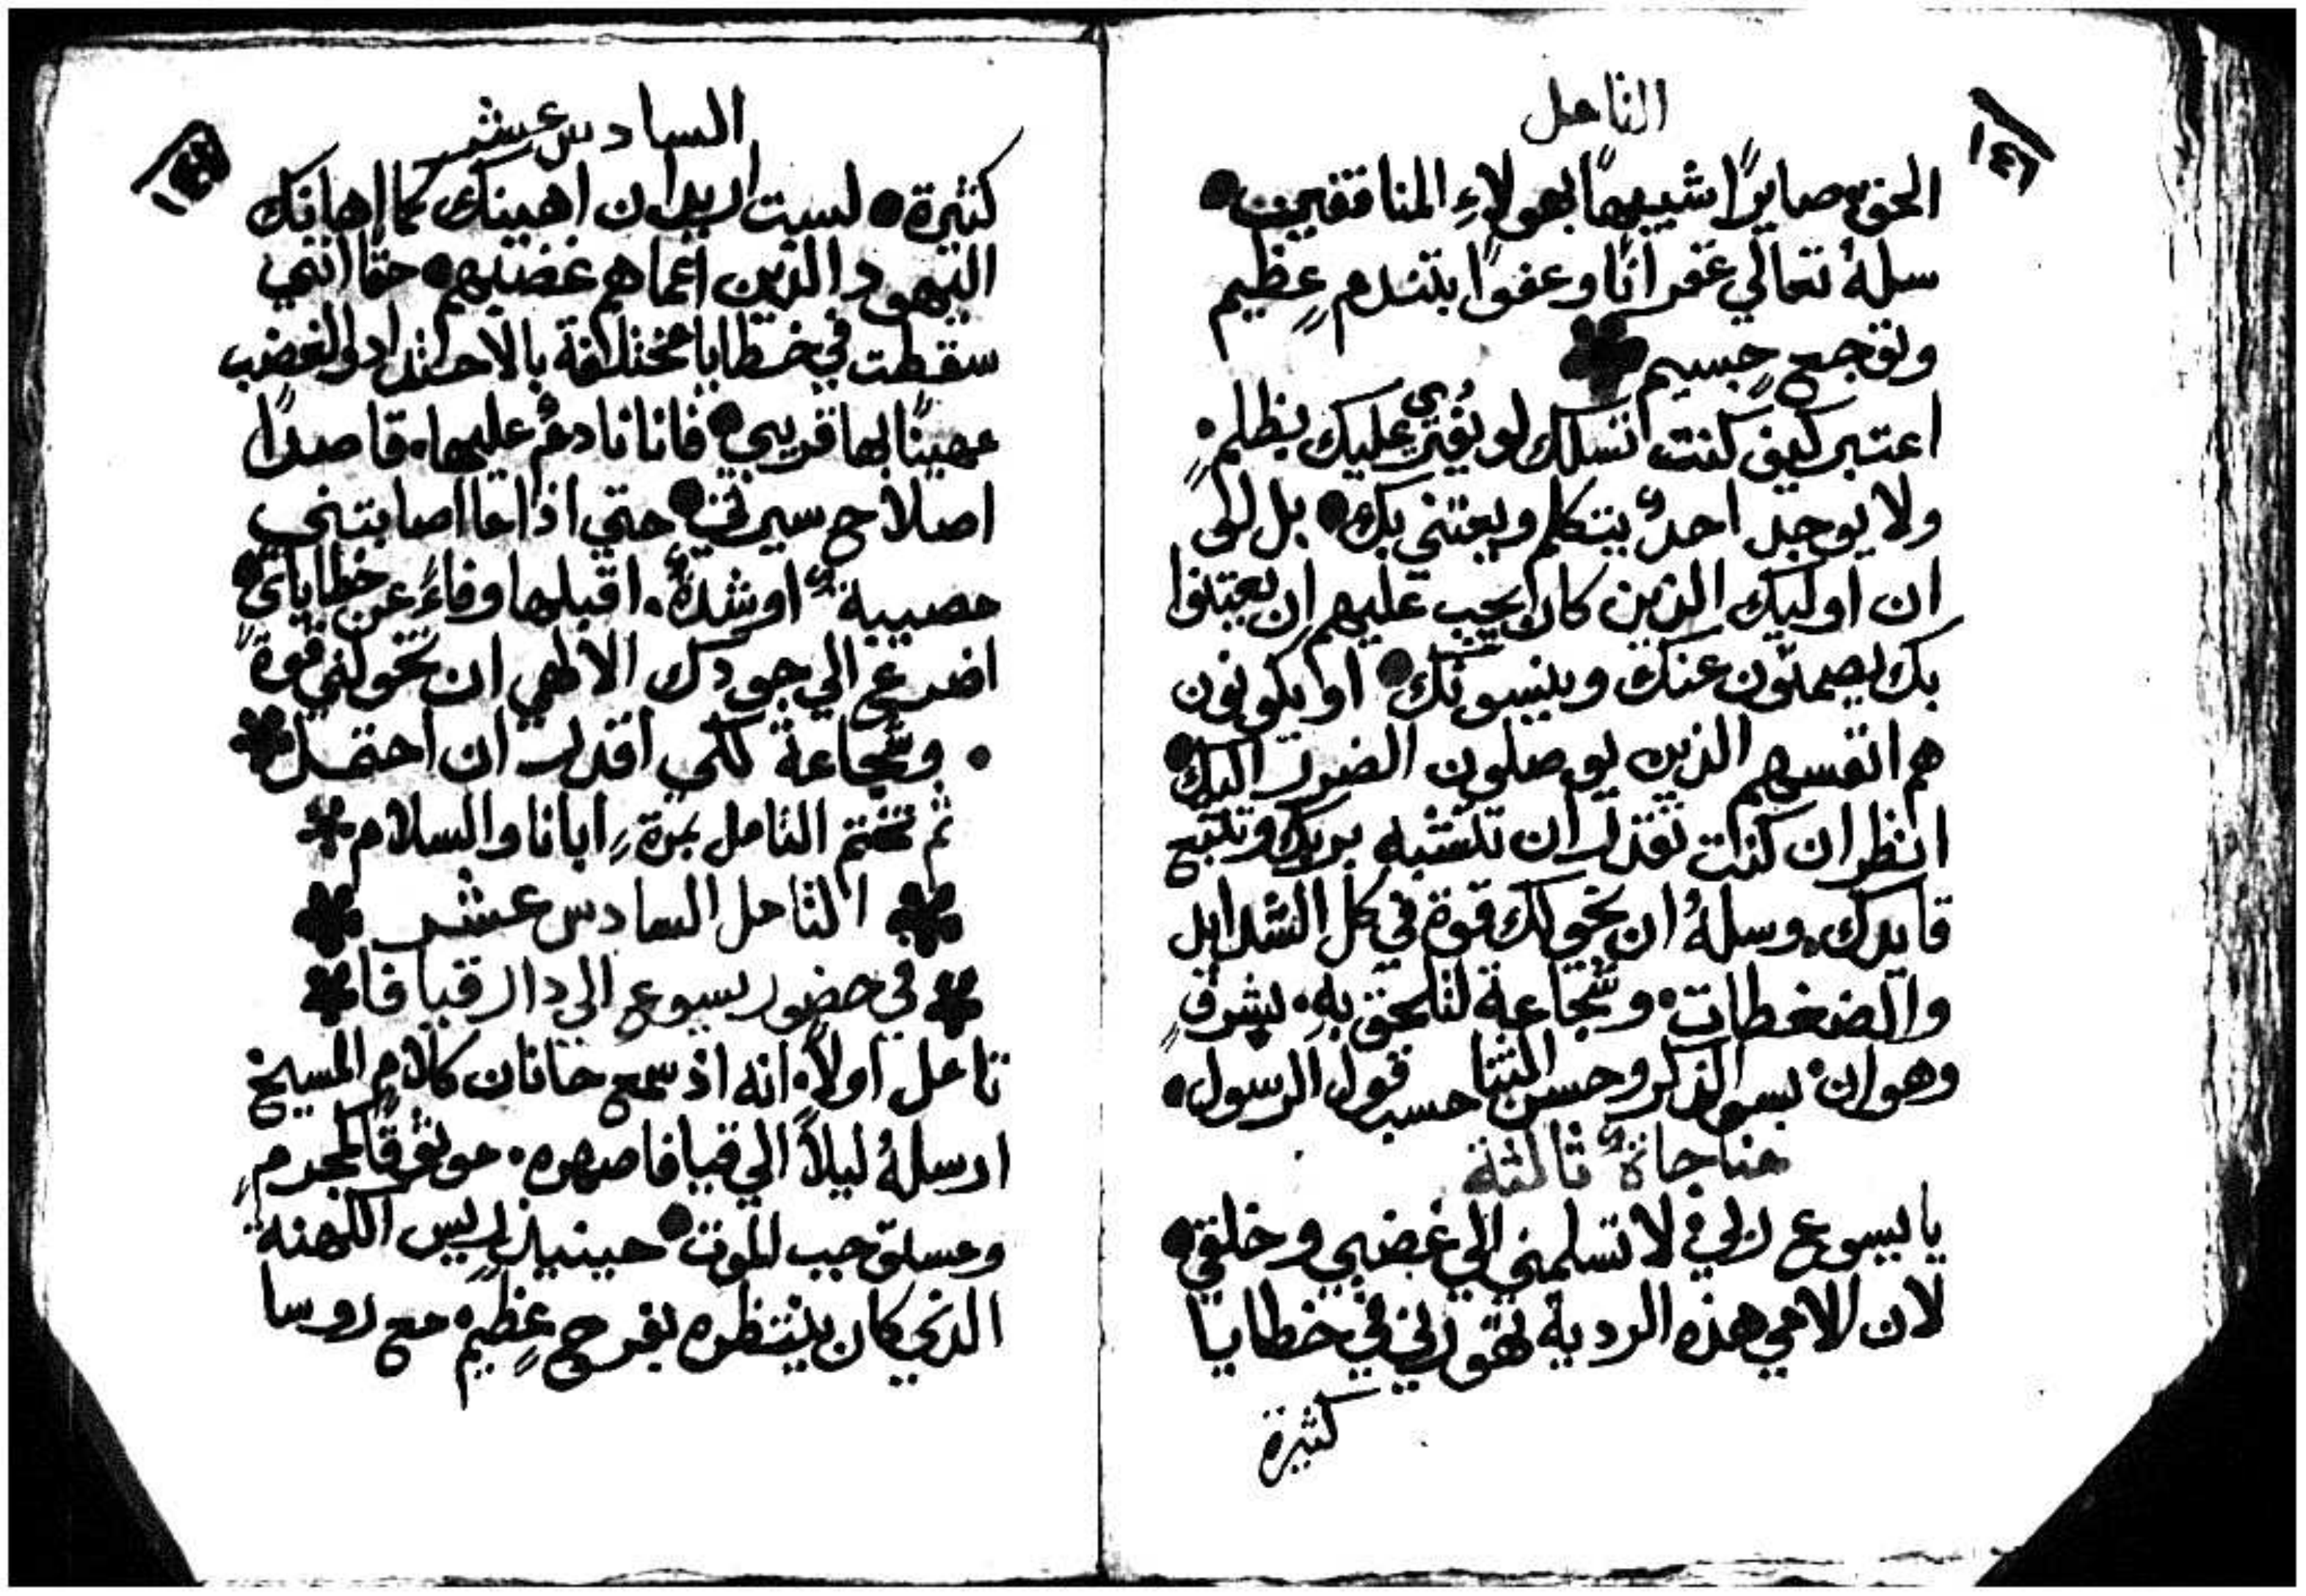 التامل
١٤٦
الحق صايرًا شبيهًا بهولاءِ المنافقين
سلهُ تعالي غفرانًا وعفوًا بتندمٍ عظيم
وتوجعٍ جسيم
اعتبر كيف كنت تسلك لو يُفتري عليك بظلمٍ
ولا يوجد احدٌ يتكلم ويعتني بك بل لكي
ان اوليك الذين كان يجب عليهم ان يعتنوا
بك يصمتون عنك وينسونك او يكونون
هم انفسهم الذين يوصلون الضرر اليك
انظر ان كنت تقدر ان تتشبه بربك وتتبع
قايدك وسلهُ ان يخولك قوة في كل الشدايد
والضغطات وشجاعة لتلحق به بشرفٍ
وهوان بسو الذكر وحسن الثنا حسب قول الرسول
مناجاةٌ ثالثة
يا يسوع ربي لا تسلمني الي غضبي وخلقي
لان الامي هذه الردية تهورني في خطايا
كثيرة
السادس عشر
كثيرة لست اريد ان اهينك كما اهانك
اليهود الذين اعماهم غضبهم حقًا انني
سقطت في خطايا مختلفة بالاحتداد والغضب
مهينًا بها قريبي فانا نادمٌ عليها قاصدًا
اصلاح سيرتي حتي اذا ما اصابتني
مصيبةٌ او شدةٌ اقبلها وفاءً عن خطاياي
اضرع الي جودك الالهي ان تخولني قوةً
وشجاعة لكي اقدر ان احتمل
ثم تختم التامل بمرةِ ابانا والسلام
التامل السادس عشر
في حضور يسوع الي دار قيافا
تامل اولاً انه اذ سمع حنانان كلام المسيح
ارسلهُ ليلاً الي قيافا صهره موثوقًا كمجرمٍ
ومستوجب الموت حينيذٍ ريس الكهنة
الذي كان ينتظره بفرحٍ عظيم مع روسا